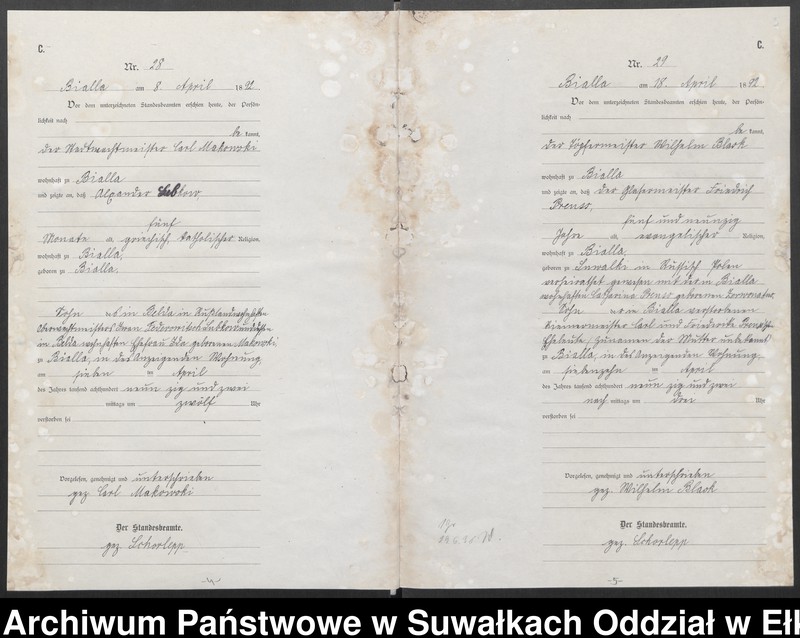 C.
Nr. 28
Bialla am 8 April 1892
Vor dem unterzeichneten Standesbeamten erschien heute, der Persön-
lichkeit nach
be kannt,
der Wachtmeister Carl Makowski
wohnhaft zu Bialla
und zeigte an, daß Alexander
fünf
Monate a, griechisch katholischer Religion,
wohnhaft zu Bialla,
geboren zu Bialla,
Sohn des in Rußland
Oberwachtmeisters Iwan
in wohnhaften Ehefrau Ida geborenen Makowski
zu Bialla, in des Anzeigenden Wohnung,
am sieben ten April
des Jahres tausend achthundert neun zig und zwei
mittags um zwölf Uhr
verstorben sei
Vorgelesen, genehmigt und unterschrieben
gez Carl Makowski
Der Standesbeamte.
gez. Schorlepp
-4-
C.
Nr. 29
Bialla am 18 April 1892
Vor dem unterzeichneten Standesbeamten erschien heute, der Persön-
lichkeit nach
be kannt,
der Töpfermeister Wilhelm Black
wohnhaft zu Bialla
und zeigte an, daß der Glasermeister Friedrich
Preuso,
fünf und neunzig
Jahre a, evangelischer Religion,
wohnhaft zu Bialla,
geboren zu Suwalki in Russisch Polen
verheirathet gewesen mit der in Bialla
wohnhaften Catharina geborenen
Sohn der in Bialla verstorbenen
Riemermeister Carl und Friedricke
Eheleute, Zunamen der Mutter unbekannt
zu Bialla, in des Anzeigenden Wohnung
am siebenzehn ten April
des Jahres tausend achthundert neun zig und zwei
nach mittags um drei Uhr
verstorben sei
Vorgelesen, genehmigt und unterschrieben
gez. Wilhelm Black
Der Standesbeamte.
gez. Schorlepp
-5-
Archiwum Państwowe w Suwałkach Oddział w Eł